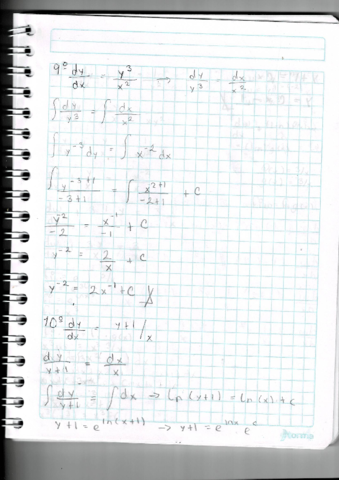 9º dy/dx = y³/x² → dy/y³ = dx/x²
∫ dy/y³ = ∫ dx/x²
∫ y⁻³ dy = ∫ x⁻² dx
∫ y⁻³⁺¹/-3+1 = ∫ x²⁺¹/-2+1 + C
y⁻²/-2 = x⁻¹/-1 + C
y⁻² = 2/x + C
y⁻² = 2x⁻¹ + C
10º dy/dx = y+1/x
dy/y+1 = dx/x
∫ dy/y+1 = ∫ dx → Ln(y+1) = Ln(x) + c
y+1 = e^ln(x+1) → y+1 = e · e^c